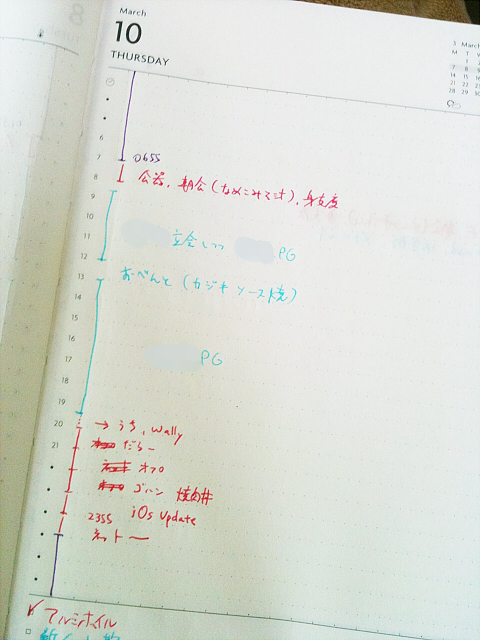 March
10
THURSDAY
3 March
M T
1
7 8
14 15
21 22
28 29
6
7 0655
8 朝食(なめこみそ汁), 身支度
9
10
11 立会しつつ PG
12
13 おべんと (カジキソース焼)
14
15
16
17 PG
18
19
20 → うち, Wally
21 だらー
オフロ
ゴハン 焼肉丼
2355 iOS Update
ネットー
アルミホイル